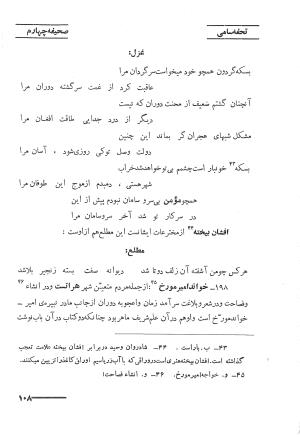 تحفهٔ سامی
صحیفهٔ چهارم
غزل:
بسکه گردون همچو خود میخواست سرگردان مرا
عاقبت کرد از غمت سرگشته دوران مرا
آنچنان گشتم ضعیف از محنت دوران که نیست
دیگر از درد جدایی طاقت افغان مرا
مشکل شبهای هجران گر بماند این چنین
دولت وصل توکی روزی‌شود، آسان مرا
بسکه۴۳ خونبار است چشمم بی‌تو خواهد شد خراب
شهر هستی، دمبدم از موج این طوفان مرا
همچو مؤمن بی‌سر و سامان نبودم پیش از این
در سرکار تو شد آخر سروسامان مرا
افشان بیخته۴۴ از مخترعات ایشانست این مطلع هم از اوست:
مطلع:
هرکس چومن آشفته آن زلف دوتا شد دیوانه صفت بسته زنجیر بلاشد
۱۹۸- خواند امیر مورخ۴۵ از جمله مردم متعین شهر هراتست و در انشاء۴۶
فصاحت و در شعر و بلاغت سرآمد زمان و اعجوبه دوران از جانب مادر نبیره‌ی امیر
خواند مورخ است و او هم در آن علم شریف ماهر بود چنانکه دو کتاب در آن باب نوشت
۴۳- ب. یاد است. ۴۴- شادروان وحید در برابر افشان بیخته علامت تعجب
گذاشته است. افشان بیخته هنری است و در اوراقی که با آب زر یا سیم اوراق کاغذ را از بین میکنند.
۴۵- و. خواجه امیر مورخ، ۴۶- و. انشاء فصاحت؛
۱۰۸